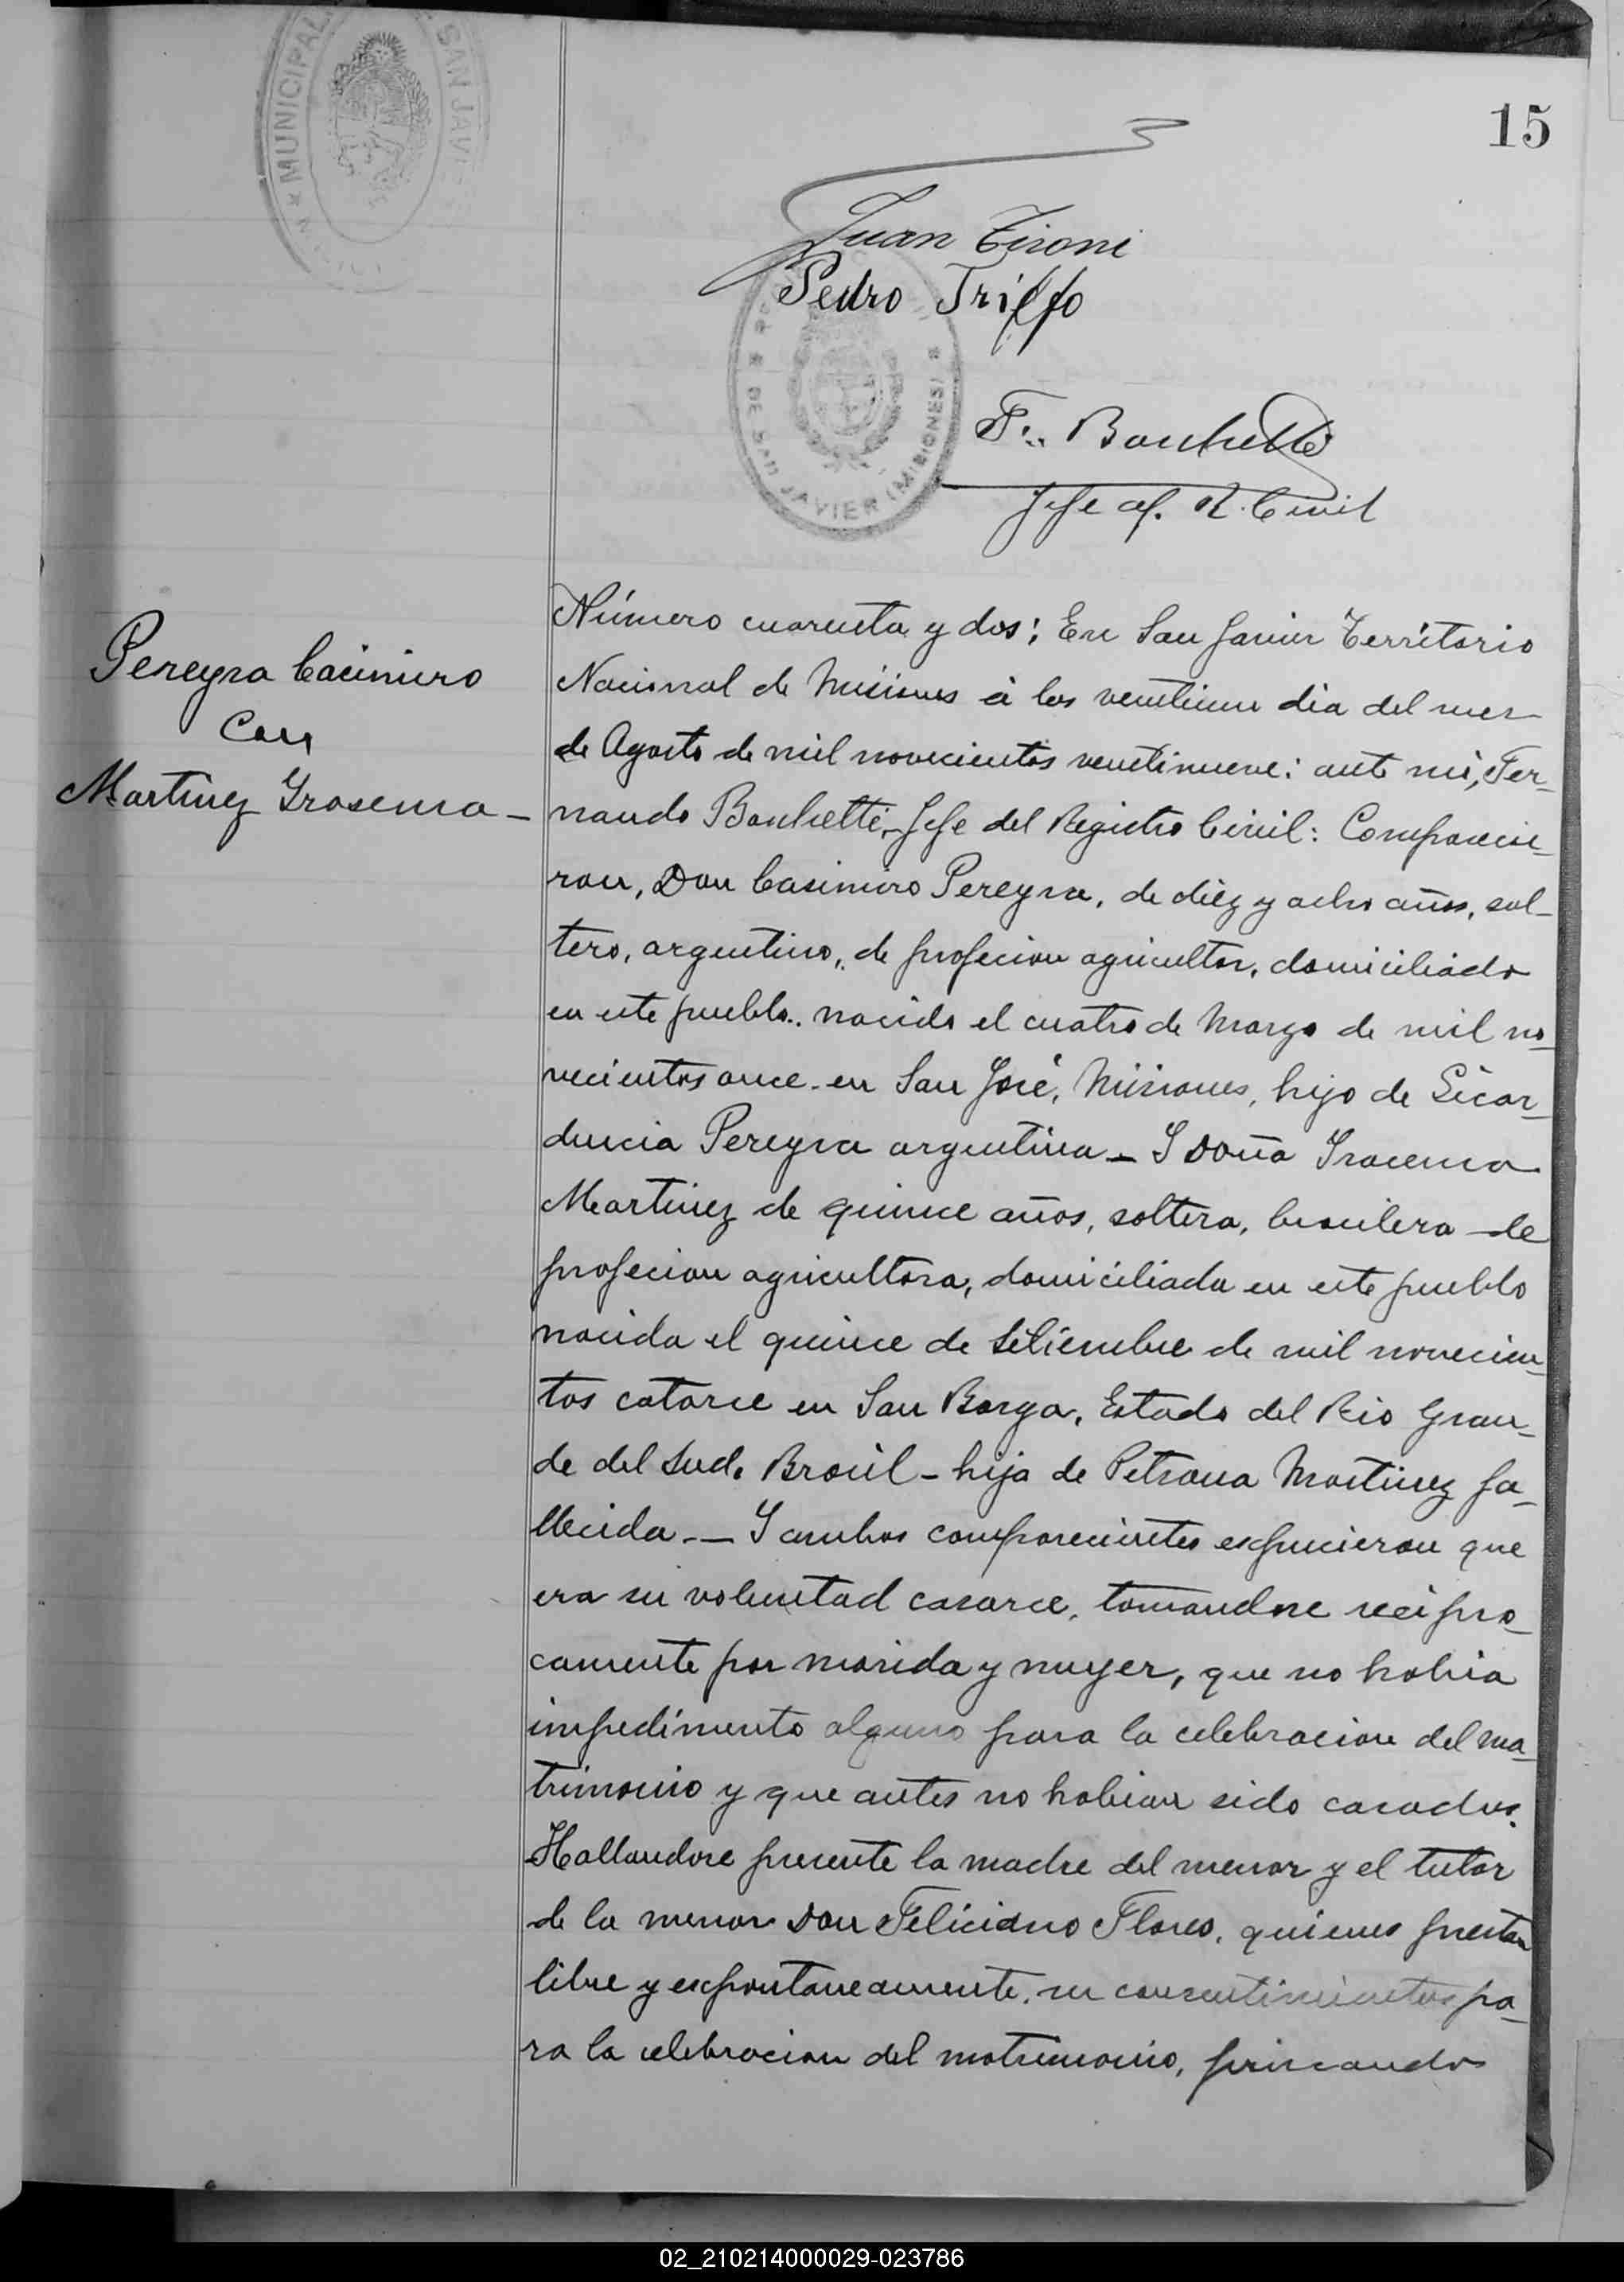 MUNICIPAL SAN JAVIER
15
Juan Tironi
Pedro Triffo
DE SAN JAVIER (MISIONES)
F. Banchetti
Jefe of. R. Civil
Pereyra Casimiro
Con
Martinez Irasema_
Número cuarenta y dos; En San Javier Territorio
Nacional de Misiones á los ventiun dia del mes
de Agosto de mil novecientos ventinueve: ante mi, Fer_
nando Banchetti, Jefe del Registro Civil: Comparecie_
ron, Don Casimiro Pereyra, de diez y ocho años, sol_
tero, argentino, de profecion agricultor, domiciliado
en este pueblo.. nacido el cuatro de Marzo de mil no_
vecientos once en San José, Misiones, hijo de
Pereyra argentina_ Y Doña Iracema
Martinez de quince años, soltera, brasilera de
profecion agricultora, domiciliada en este pueblo
nacida el quince de Setiembre de mil novecien_
tos catorce en San Borja, Estado del Rio Gran_
de del Sud. Brasil - hija de Petrona Martinez fa_
llecida._ Y ambos comparecientes espucieron que
era su voluntad casarce, tomandose recipro_
camente por marido y muger, que no habia
impedimento alguno para la celebracion del ma_
trimonio y que antes no habian sido casados.
Hallandose presente la madre del menor y el tutor
de la menor Don Feliciano Flores, quienes prestan
libre y espontaneamente, su consentimiento pa_
ra la celebracion del matrimonio,
02_210214000029-023786